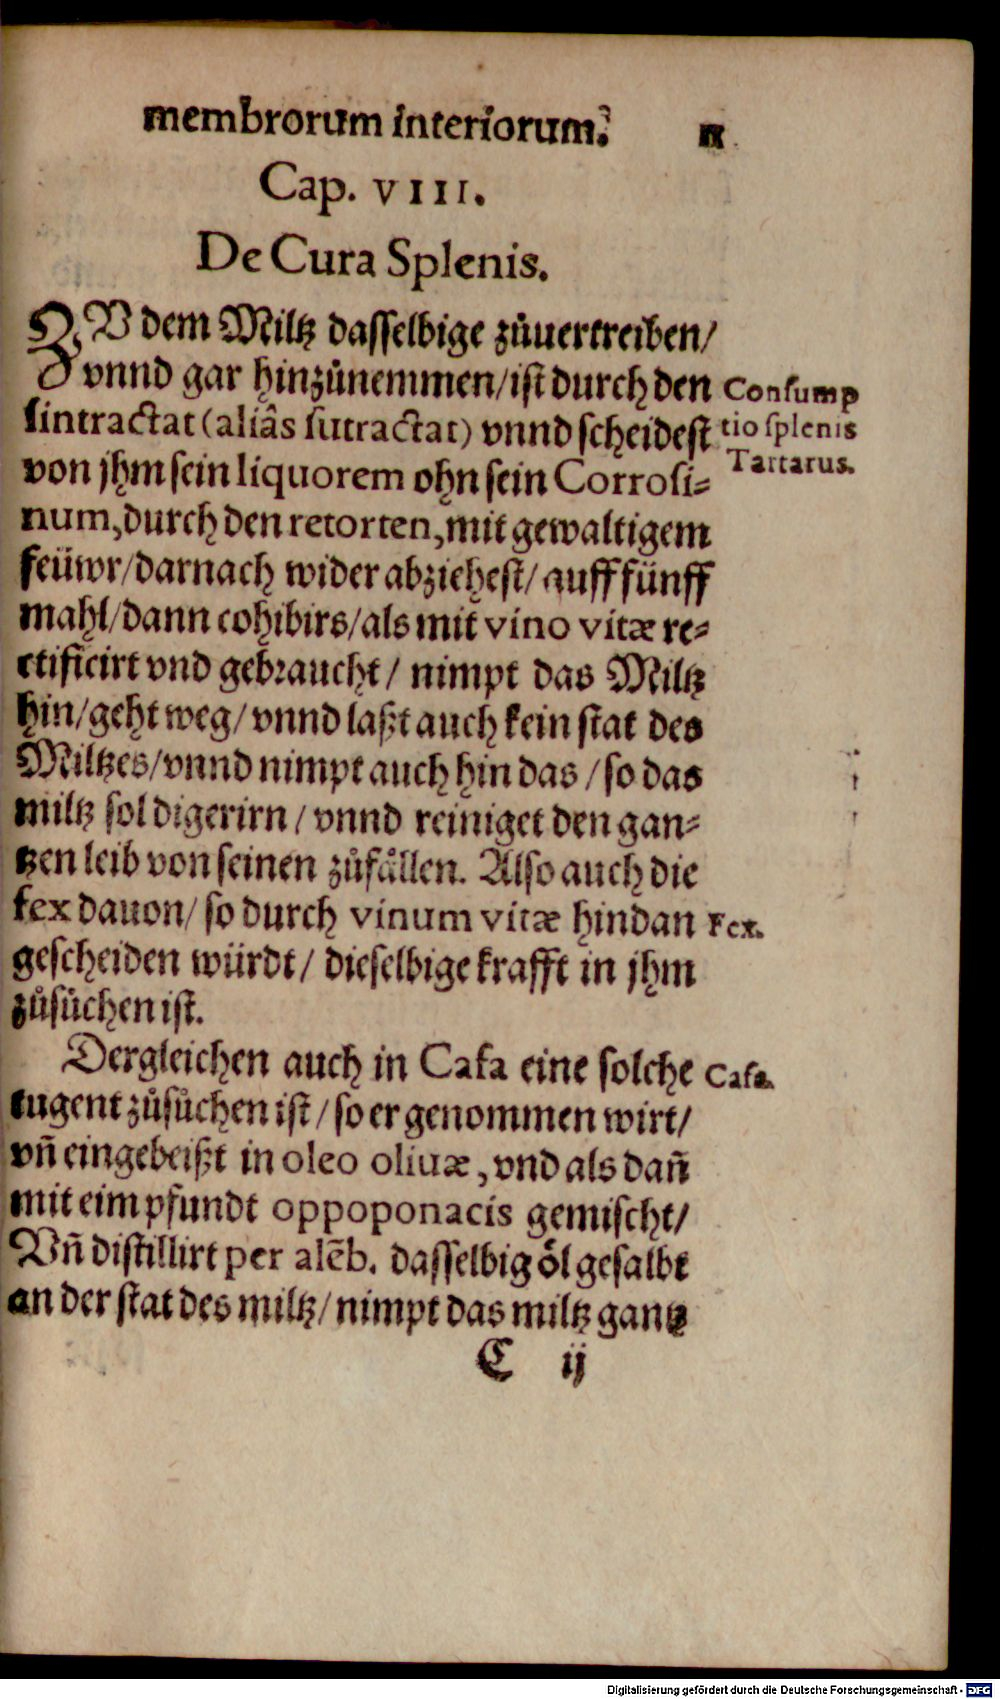 membrorum interiorum.
Cap. VIII.
De Cura Splenis.
ZV dem Miltz dasselbige zůuertreiben/
vnnd gar hinzůnemmen/ist durch den
sintractat (aliâs sutractat) vnnd scheidest
von jhm sein liquorem ohn sein Corrosi-
num, durch den retorten, mit gewaltigem
feüwr/darnach wider abziehest/auff fünff
mahl/dann cohibirs/als mit vino vitæ re-
ctificirt vnd gebraucht/ nimpt das Miltz
hin/geht weg/vnnd laßt auch kein stat des
Miltzes/vnnd nimpt auch hin das/so das
miltz sol digerirn/vnnd reiniget den gan-
tzen leib von seinen zůfällen. Also auch die
fex dauon/ so durch vinum vitæ hindan
gescheiden würdt/ dieselbige krafft in jhm
zůsůchen ist.
Dergleichen auch in Cafa eine solche
tugent zůsůchen ist/so er genommen wirt/
vñ eingebeißt in oleo oliuæ, vnd als dañ
mit eim pfundt oppoponacis gemischt/
Vñ distillirt per alẽb. dasselbig öl gesalbt
an der stat des miltz/nimpt das miltz gantz
C ij
Consump
tio splenis
Tartarus.
Fex.
Cafa.
Digitalisierung gefördert durch die Deutsche Forschungsgemeinschaft - DFG